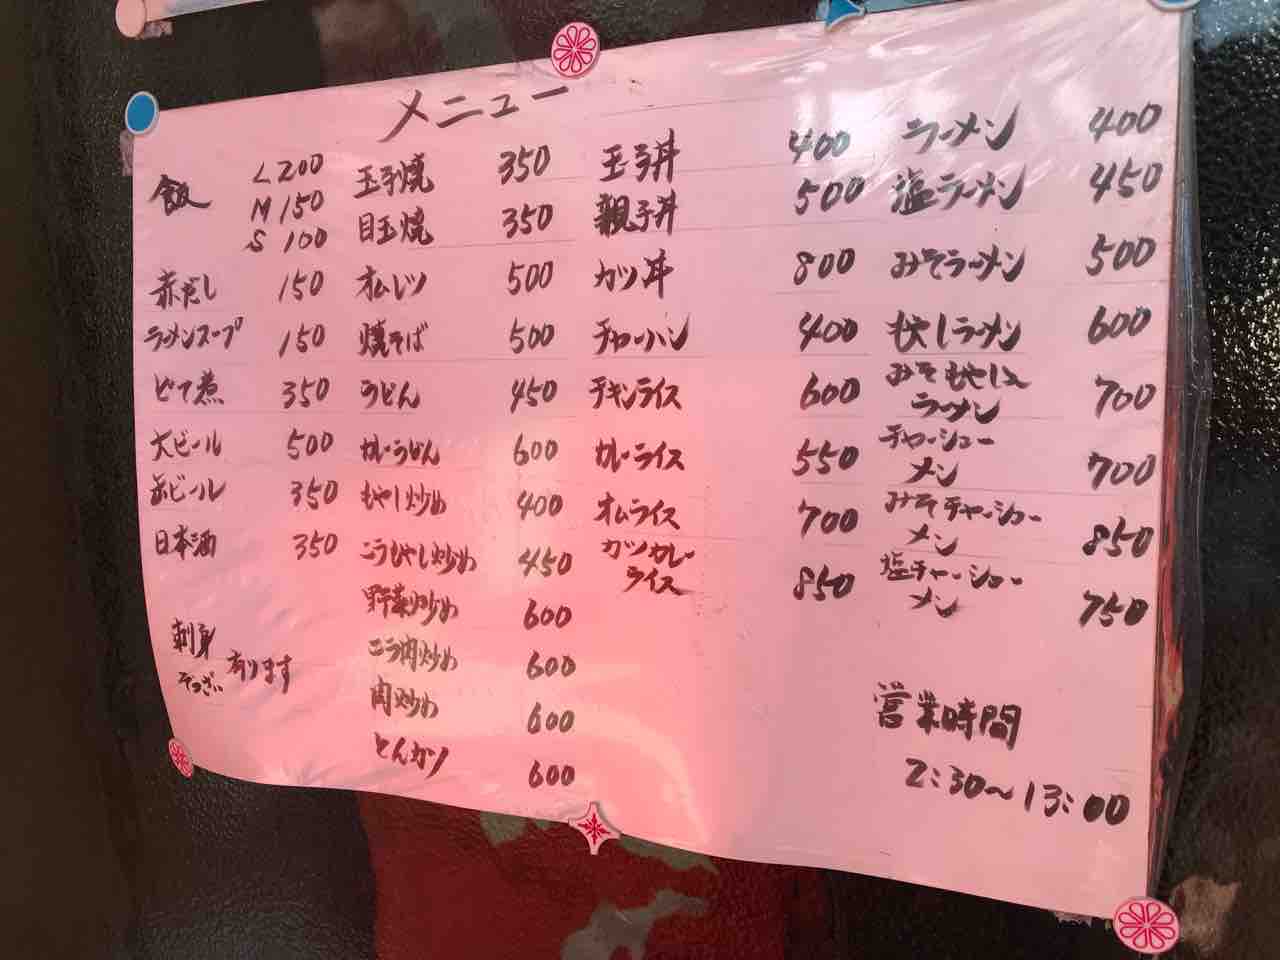 メニュー
飯 L 200
M 150
S 100
赤だし 150
ラーメンスープ 150
どて煮 350
大ビール 500
小ビール 350
日本酒 350
刺身
そうざい 有ります
玉子焼 350
目玉焼 350
オムレツ 500
焼そば 500
うどん 450
カレーうどん 600
もやし炒め 400
ニラもやし炒め 450
野菜炒め 600
ニラ肉炒め 600
肉炒め 600
とんカツ 600
玉子丼 400
親子丼 500
カツ丼 800
チャーハン 400
チキンライス 600
カレーライス 550
オムライス 700
カツカレー
ライス 850
ラーメン 400
塩ラーメン 450
みそラーメン 500
もやしラーメン 600
みそもやし
ラーメン 700
チャーシュー
メン 700
みそチャーシュー
メン 850
塩チャーシュー
メン 750
営業時間
2:30〜13:00